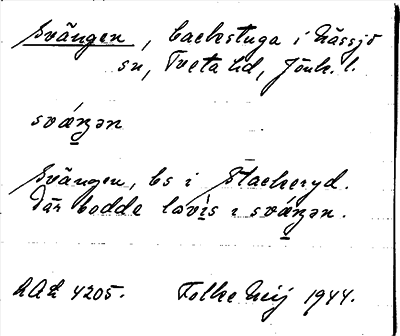 Svängen, backstuga i Nässjö
sn, Tveta hd, Jönk. l.
sváŋən
Svängen, bs i Stackeryd.
Där bodde lavis ı sváŋən.
4205. Folke 1944.